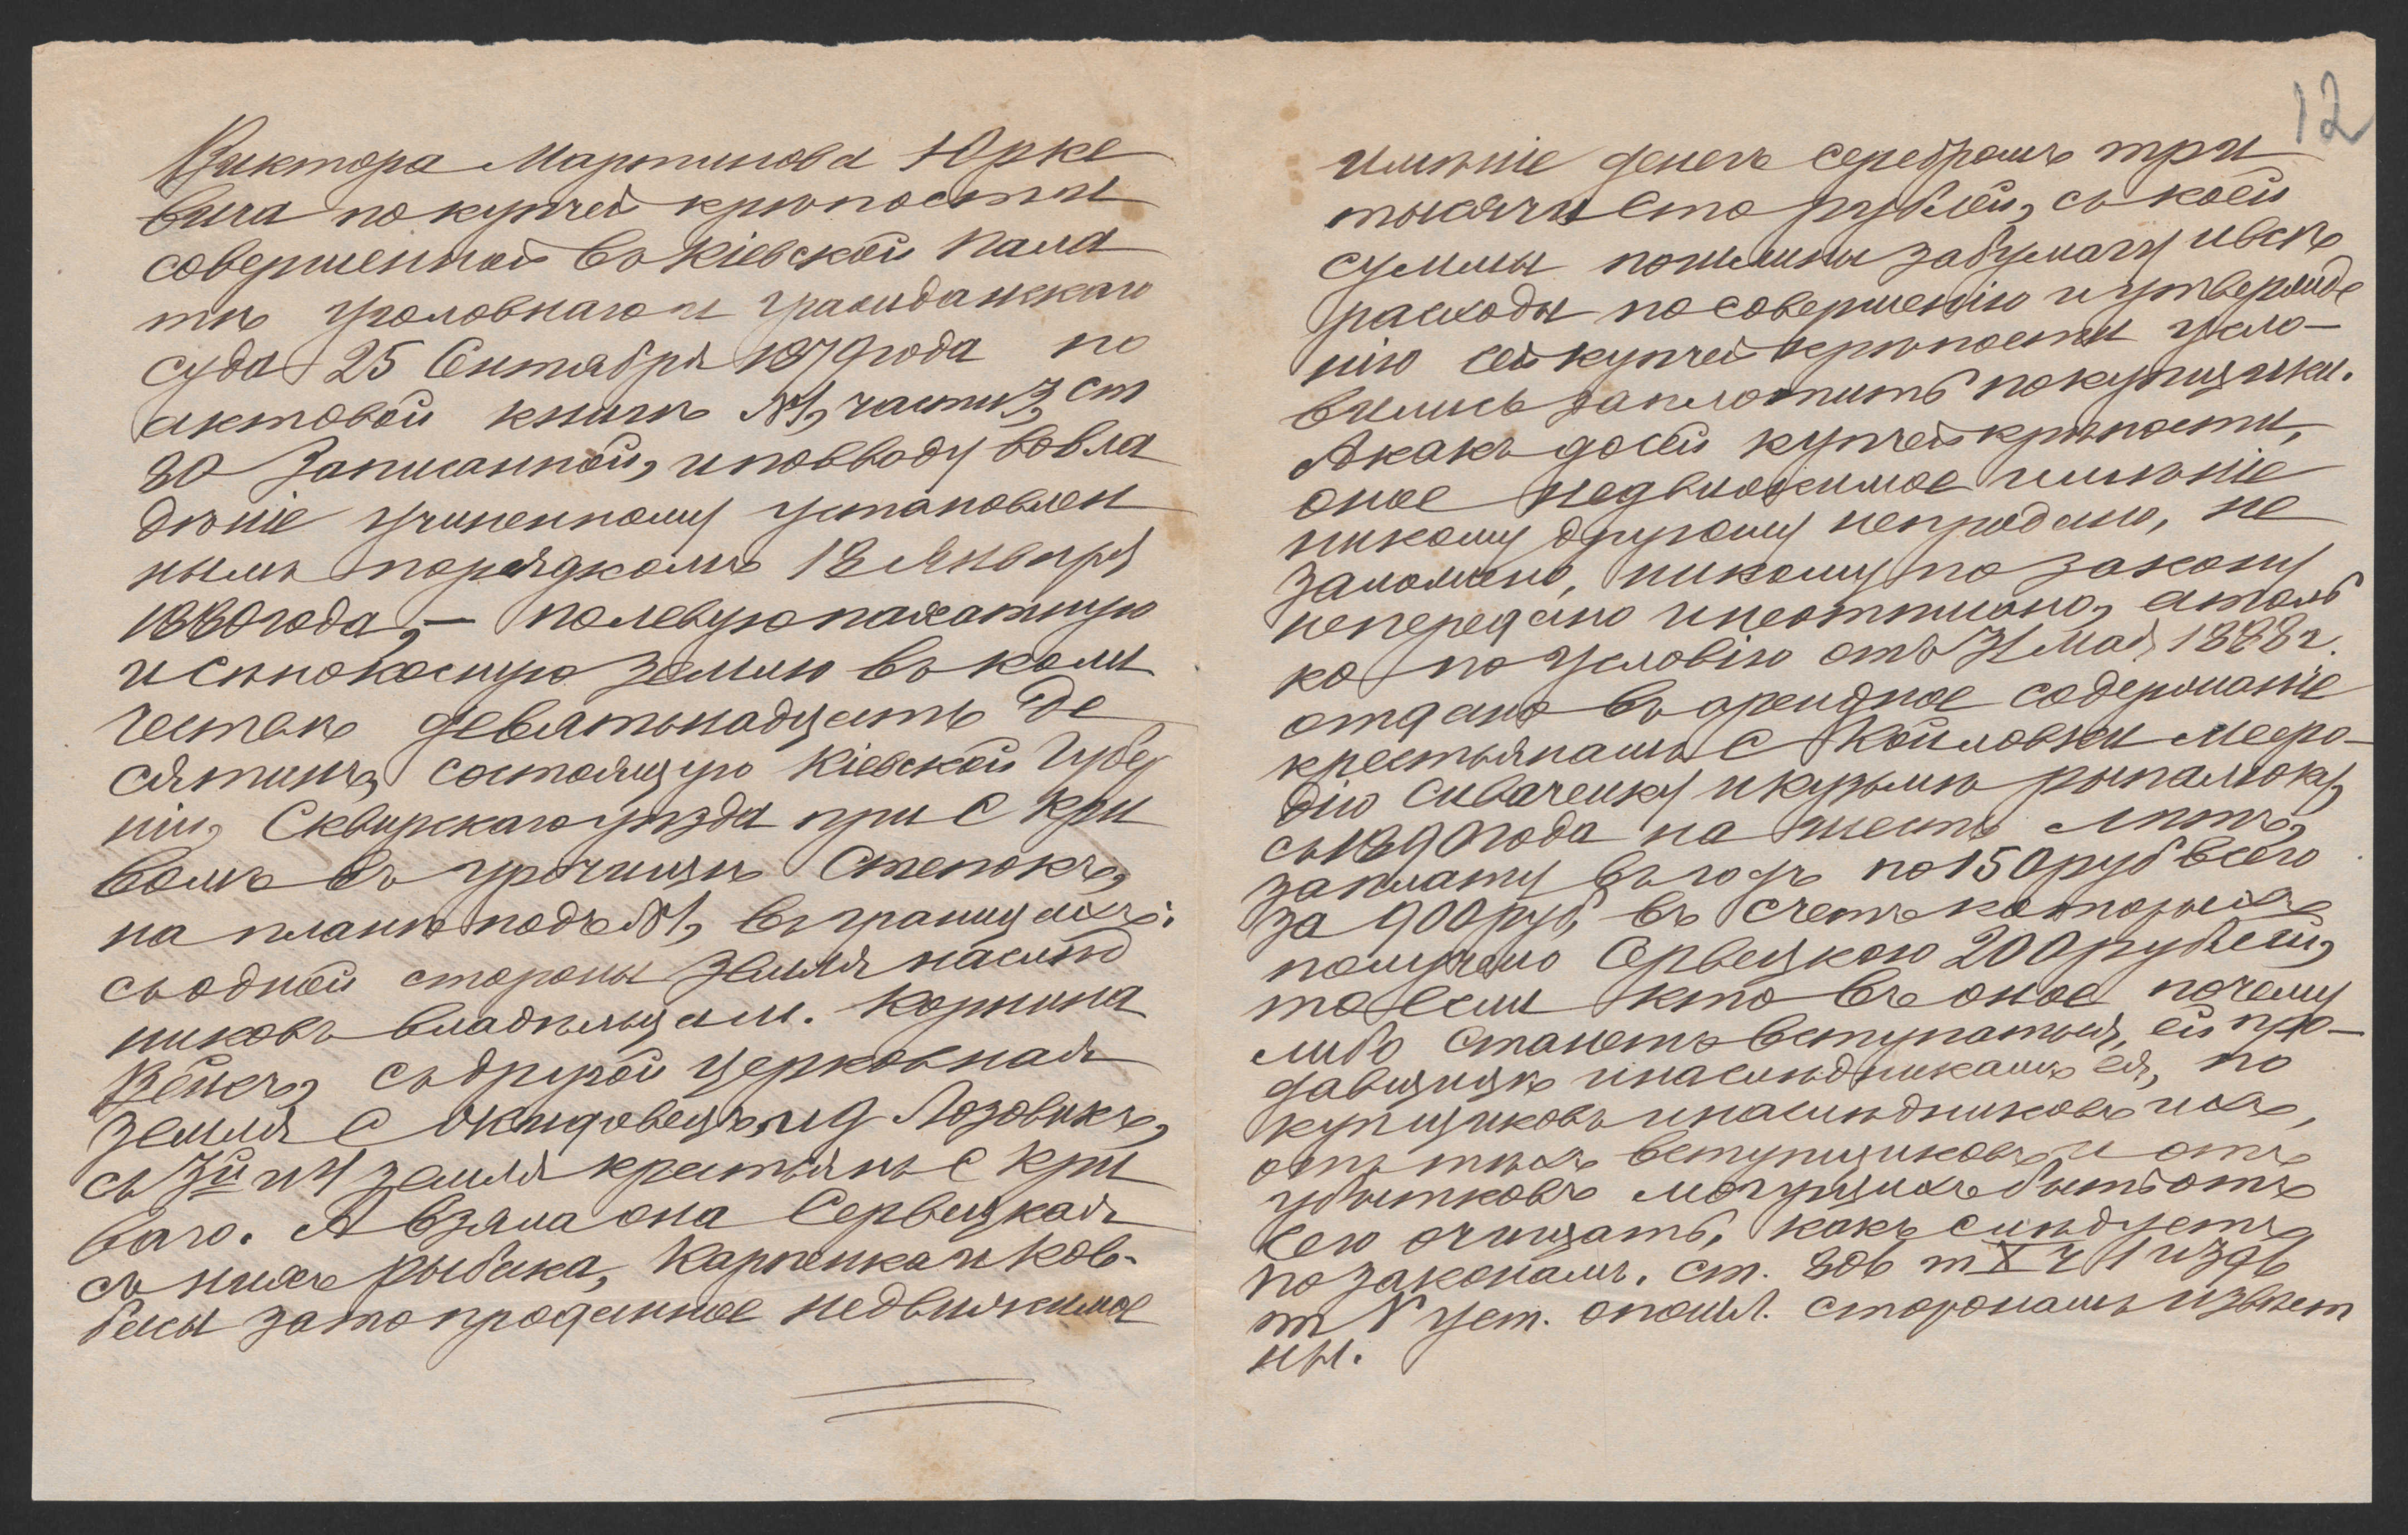 Виктора Мартинова Юрке
вича по купчей крѣпости
совершенной въ Кіевской Пала
тѣ уголовнаго и гражданскаго
суда 25 Сентября 1879 года по
актовой книгѣ №1, части 3, ст
80 записанной, и по вводу во вла
дѣніе учиненному установлен
нымъ порядкомъ 18 Января
1880 года, — полевую пахатную
и сѣнокосную землю въ коли
чествѣ девятьнадцать де
сятинъ, состоящую Кіевской Губер
ніи, Сквирскаго уѣзда при С Кри
вомъ въ урочищѣ Степокъ,
на планѣ подъ №1, въ границахъ:
съ одной стороны земля наслѣд
никовъ владѣльца м. Корнина
съ другой церковная
земля С Жидовецъ, и Д Лозовикъ,
съ 3й и 4 земля крестьянъ С Кри
ваго. А взяла она Сервецкая
съ нихъ Рыбака, Карпенка и Ков-
басы за то проданное недвижимое
12
имѣніе денегъ серебромъ три
тысячи сто рублей, съ коей
суммы пошлины за бумагу и всѣ
расходы по совершенію и утвержде
нію сей купчей крѣпости усло-
вились заплотить покупщики.
А какъ до сей купчей крѣпости,
оное недвижимое имѣніе
никому другому непродано, не
заложено, никому по закону
непередано и неоттиано, а толь
ко по условію отъ 31 Мая 1888 г.
отдано въ арендное содержаніе
крестьянамъ С Койловки Мефо-
дію Сиваченку и Кузьмѣ Рыпалюку,
съ 1890 года на шесть лѣтъ,
за плату въ годъ по 150 руб всего
за 900 руб, въ счетъ которыхъ
получено Сервецкою 200 рублей,
то если кто въ оное почему
либо станетъ вступаться, ей про-
давщицѣ и наслѣдникамъ ея, по
купщиковъ и наслѣдниковъ ихъ,
отъ тѣхъ вступщиковъ и отъ
убытковъ могущихъ быть отъ
сего очищать, какъ слѣдуетъ
по законамъ. ст. 206 т X ч 1 и
т V уст. о пошл. сторонамъ извѣст
ны.